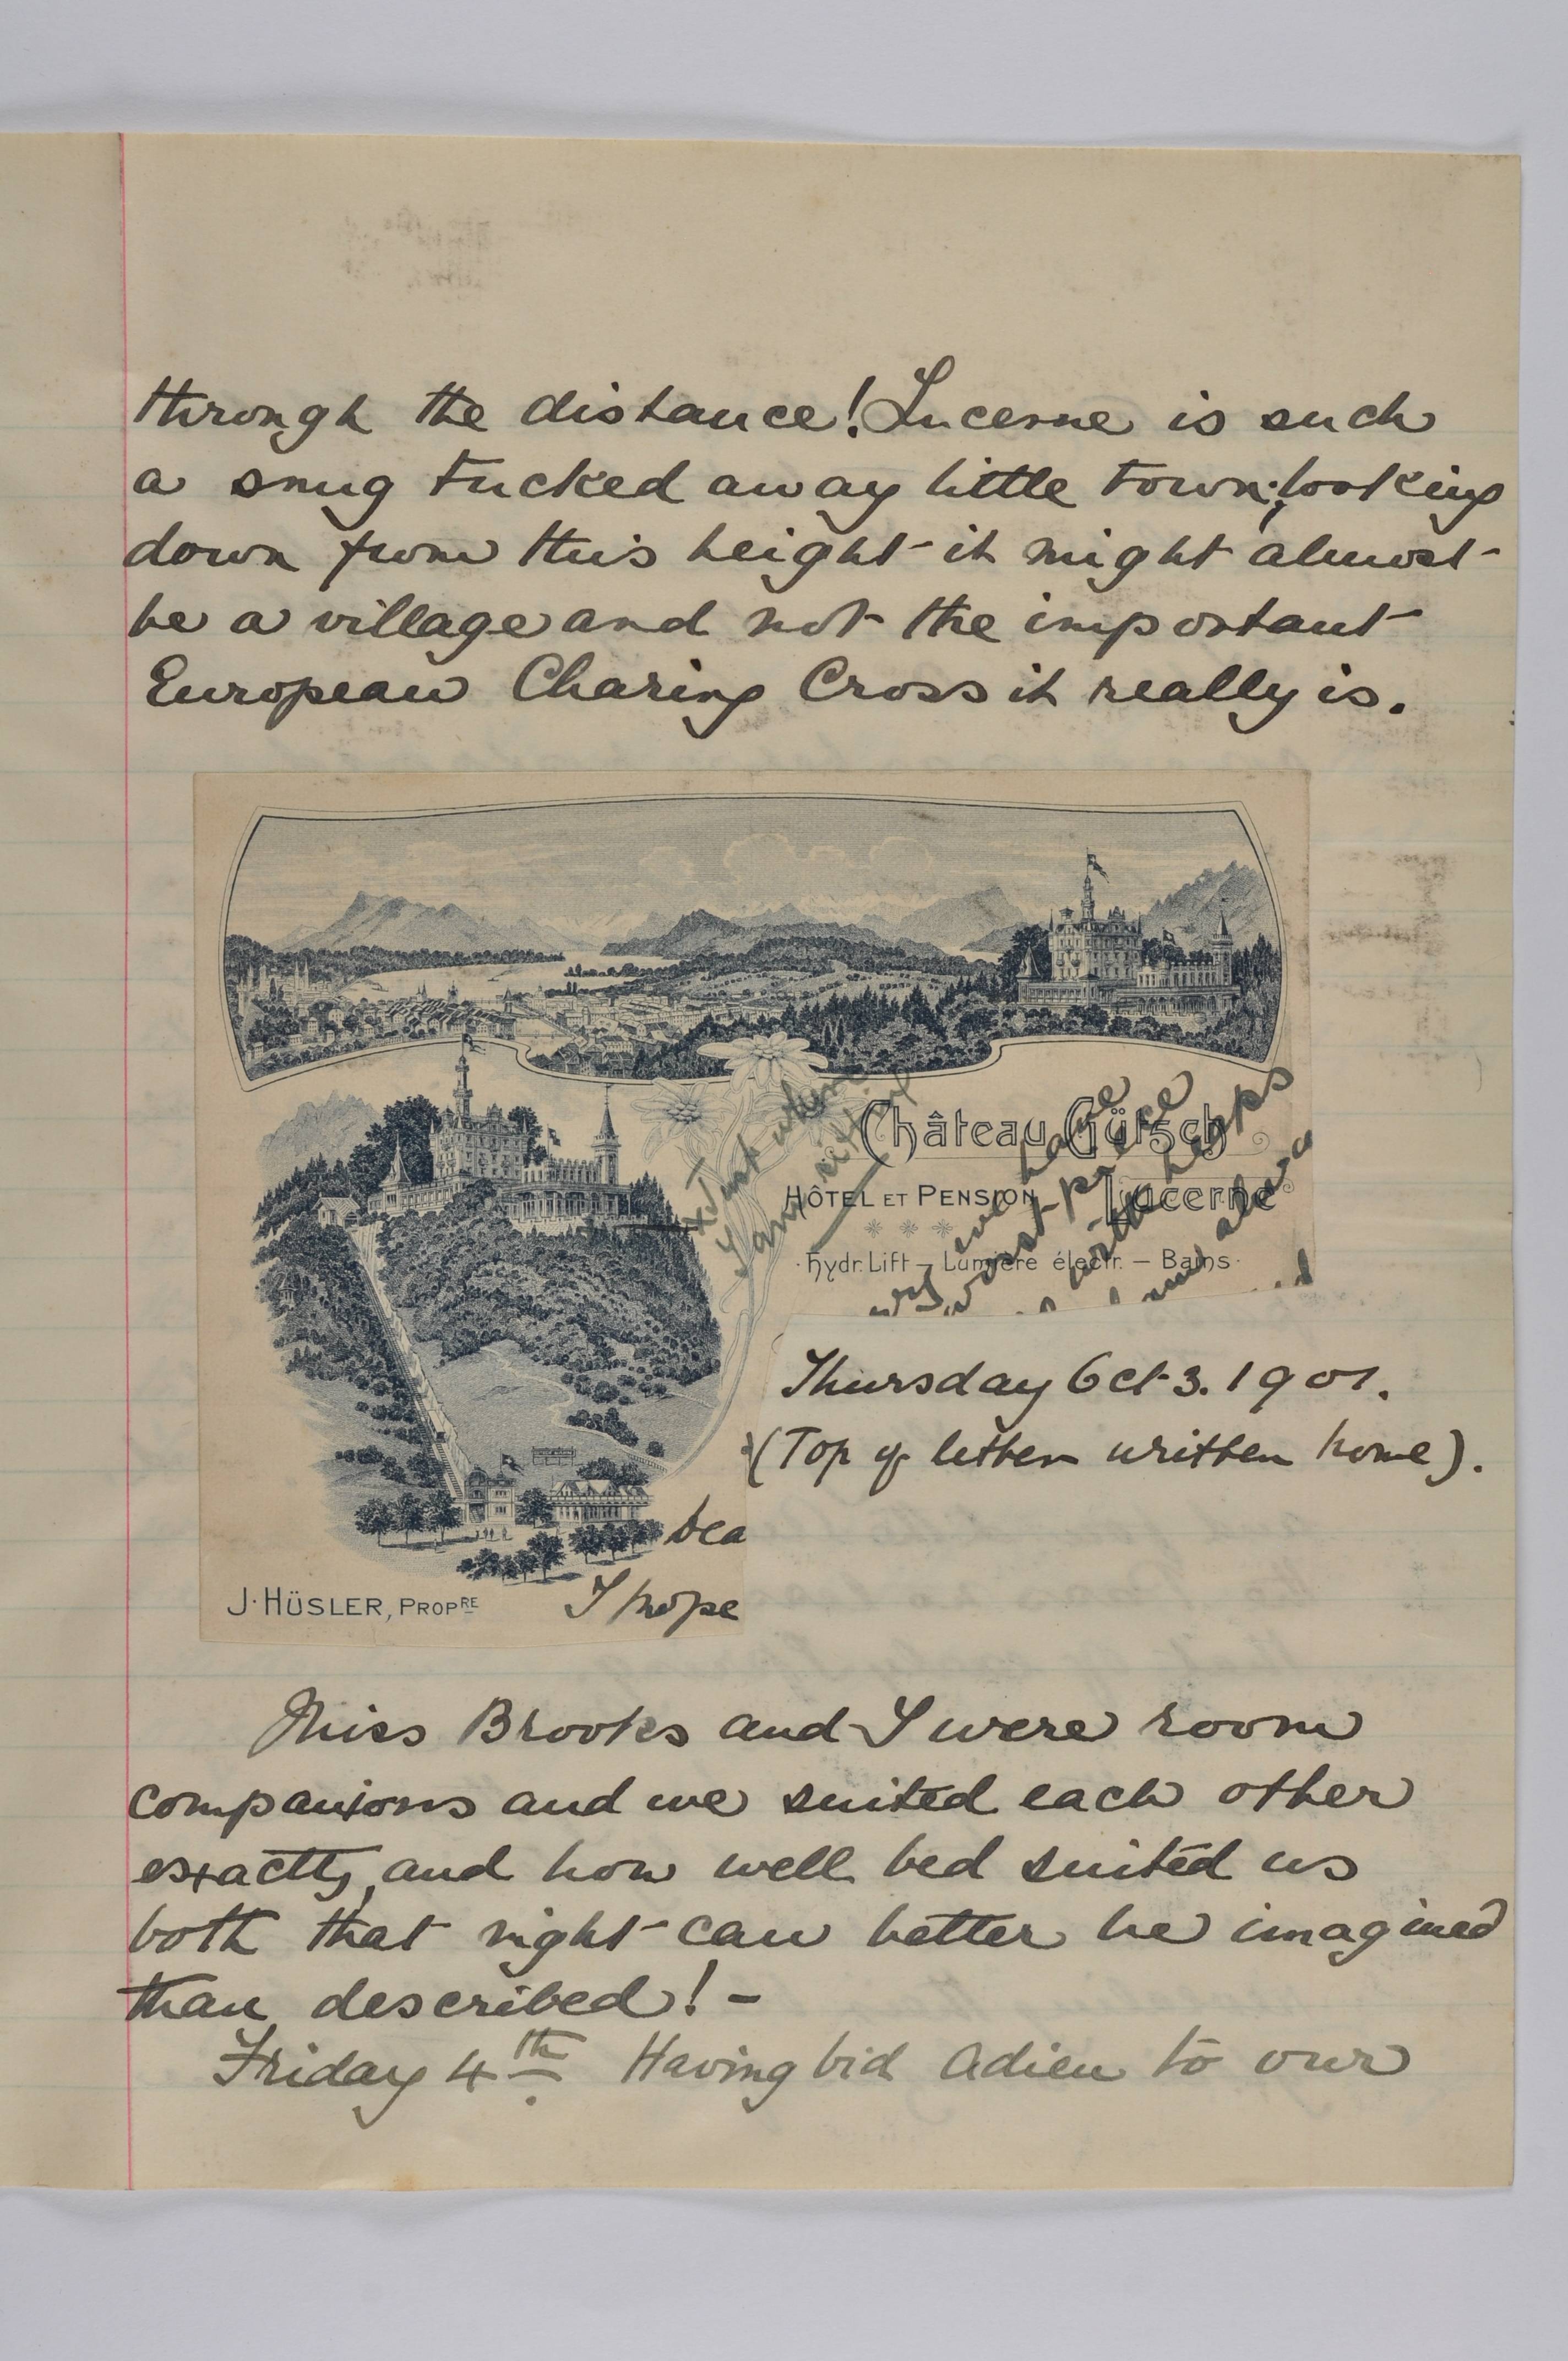 through the distance! Lucerne is such
a snug tucked away little town; looking
down from this height it might almost
be a village and not the important
European Charing Cross it really is.
Château Gütsch
Hôtel et Pension Lucerne
Hydr. Lift – Lumière électr. – Bains
x Just where
I am sitting
we have
perhaps
Thursday Oct 3. 1901.
(Top of letter written home).
bea
I hope
J. Hüsler, Propre
Miss Brooks and I were room
companions and we suited each other
exactly, and how well bed suited us
both that night can better be imagined
than described! –
Friday 4th. Having bid adieu to our